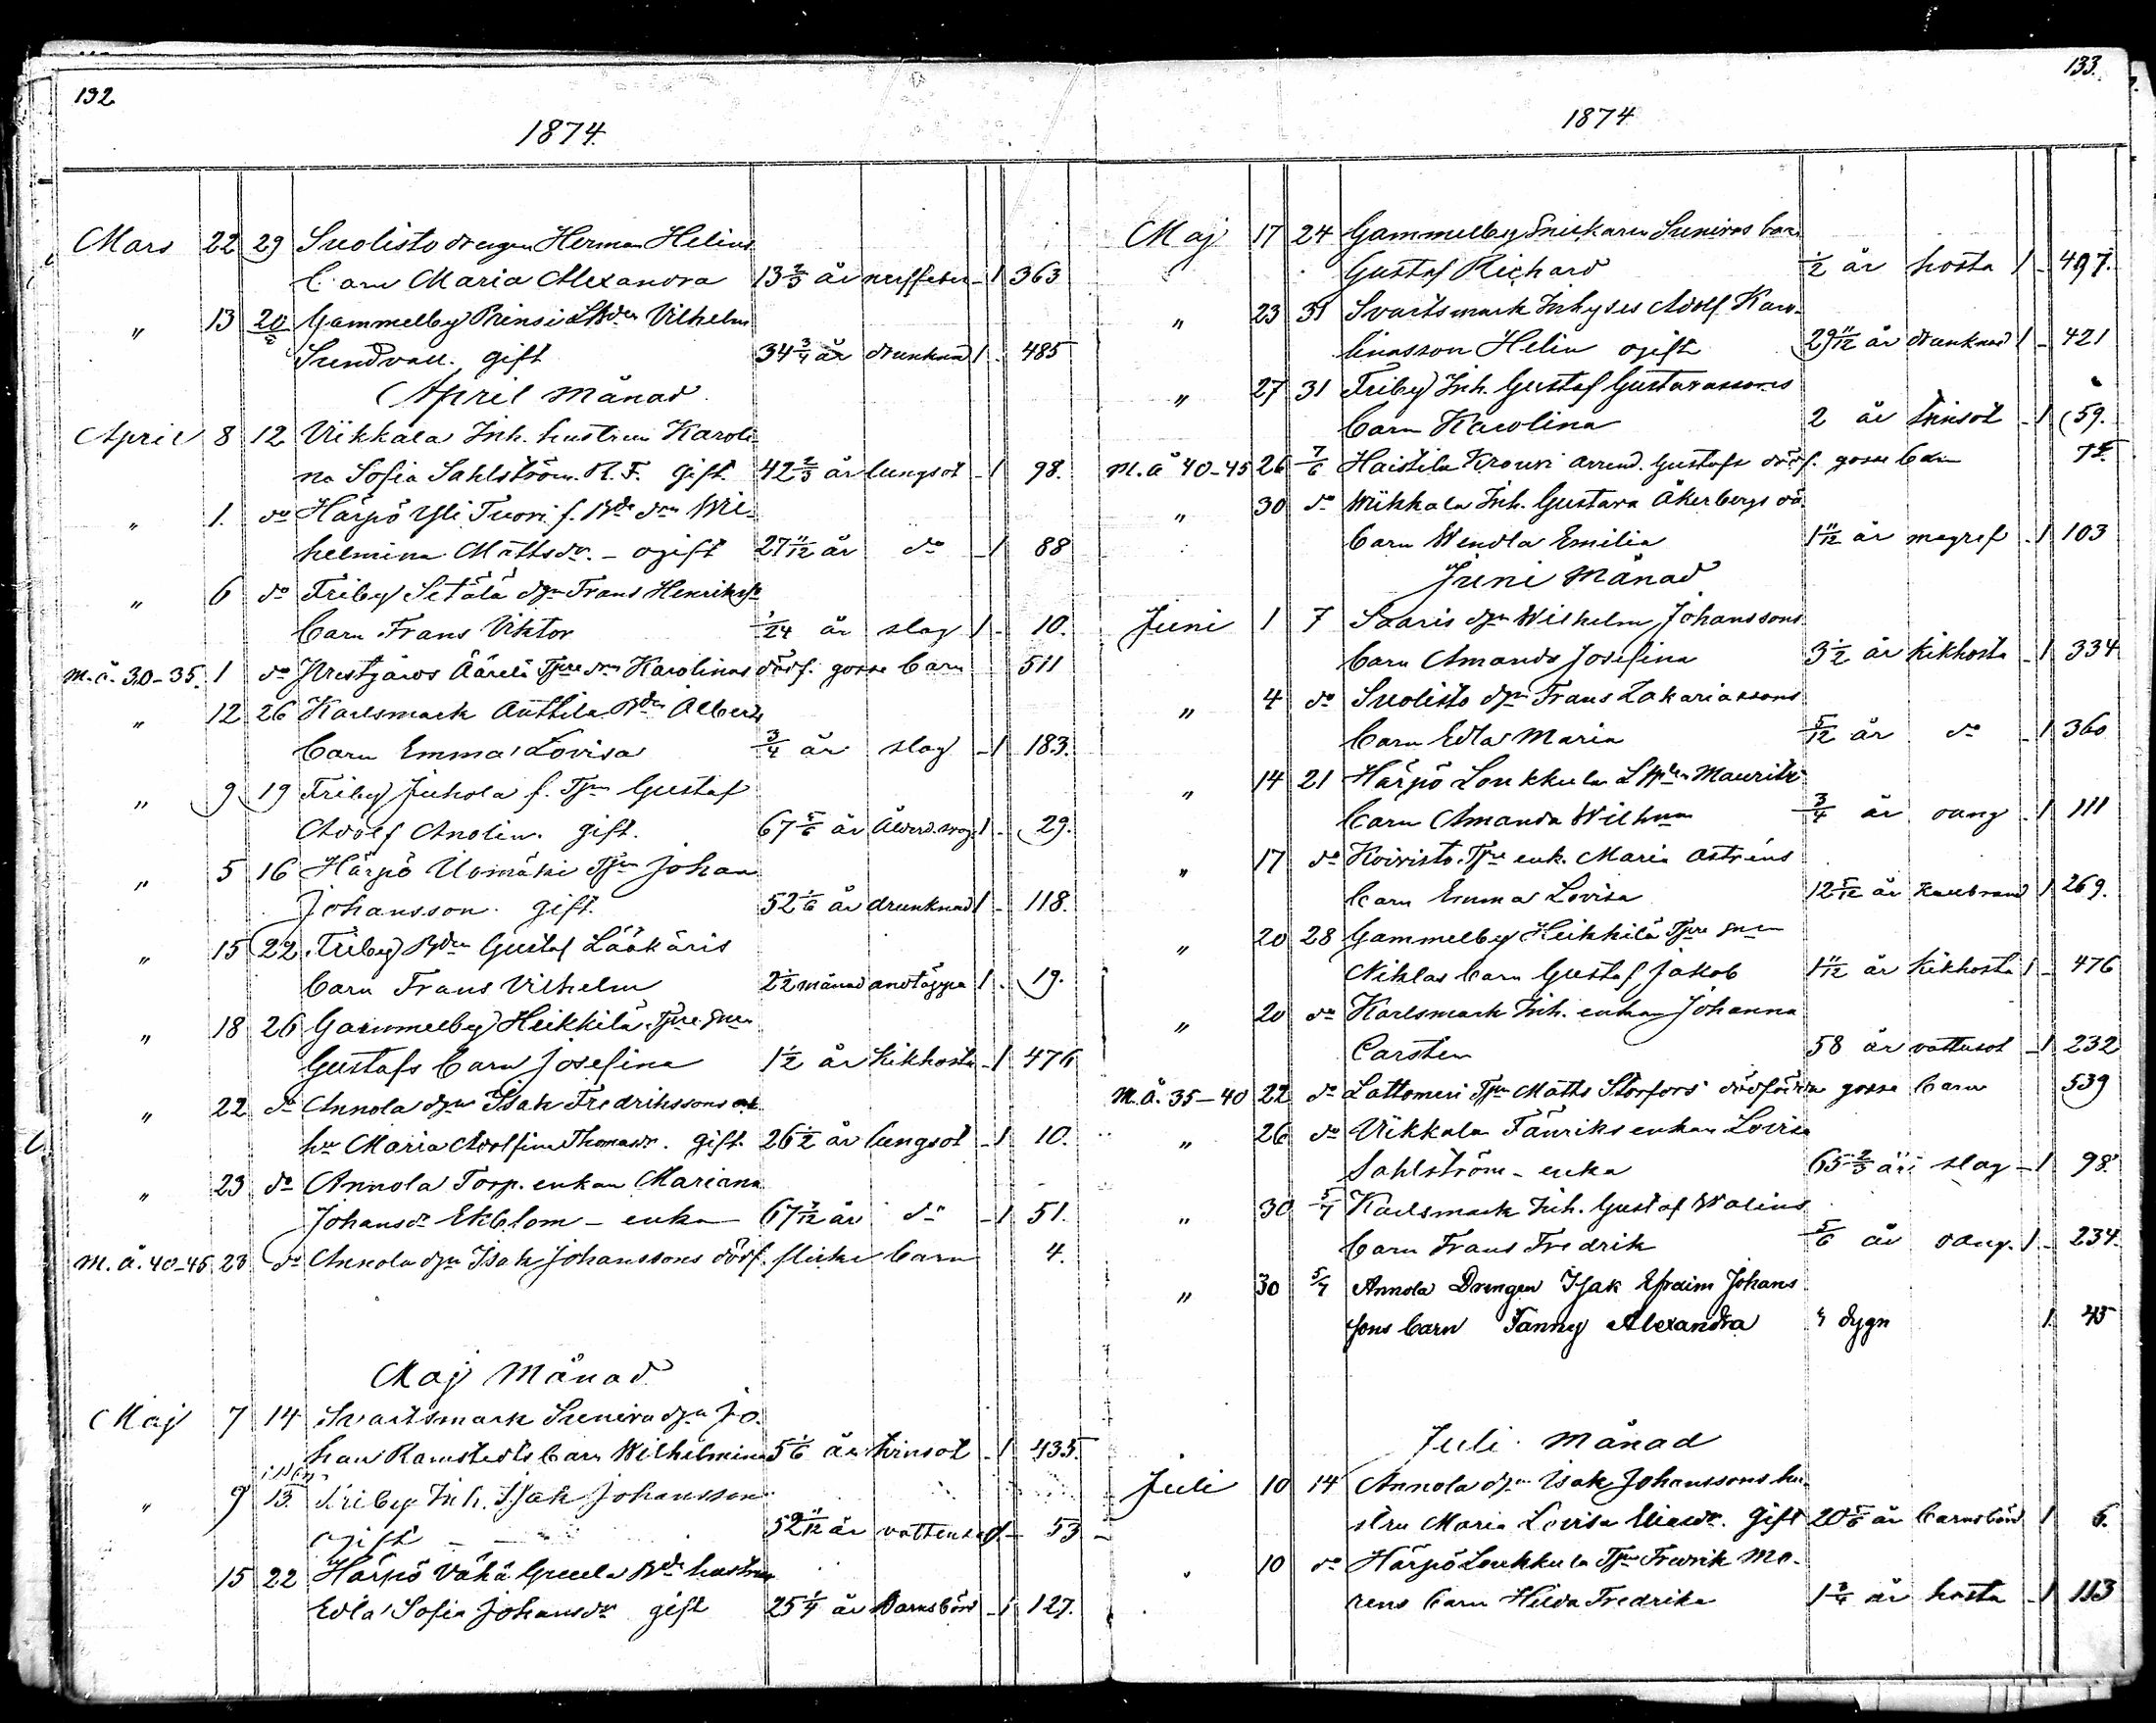 132
1874.
Mars 22 29 Suolisto drengen Herman Helins
barn Maria Alexandra 13 2/3 år nerffeber 1 363
" 13 20 Gammelby Prinsi Vilhelm
Sundvall. gift 34 3/4 år drunknad 1 485
April Månad
April 8 12 Viikkala Inh. hustrun Karoli-
na Sofia Sahlström R. F. gift. 42 2/3 år lungsot 1 98.
" 1. do Härpö Yli Tuori f. Wil-
helmina Mattsdr. - ogift 27 11/12 år do 1 88
" 6 do Friby Setälä dgn Frans Henrikss
barn Frans Viktor 1/24 år slag 1 10.
M. å. 30-35. 1 do Äärelä Karolinas dödf. gosse barn 511
" 12 26 Karlsmark Anttila Alberts
barn Emma Lovisa 3/4 år slag 1 183.
" 9 19 Friby Juhola f. Gustaf
Adolf Anolin. gift. 67 5/6 år 1 29.
" 5 16 Härpö Johan
Johansson. gift. 52 1/6 år drunknad 1 118.
" 15 22 Friby Gustaf Lääkäris
barn Frans Vilhelm 2 1/2 månad andtäppa 1 19.
" 18 26 Gammelby Heikkilä
Gustafs barn Josefina 1 1/2 år kikhosta 1 476
" 22 do Annola dgn Isak Fredrikssons
hu Maria Adolfina Thomasdr. gift 26 1/2 år lungsot 1 10.
" 23 do Annola Torp. enkan Mariana
Johansdr Ekblom - enka 67 7/12 år do 1 51.
M. å. 40-45 23 do Annola dgn Isak Johanssons dödf. flicke barn 4.
Maj Månad
Maj 7 14 Svartsmark Suniva dgn Jo-
han Ramstedts barn Wilhelmina 5 1/6 år tvinsot 1 435.
" 9 13. Friby Inh. Isak Johansson
ogift 52 11/12 år 53
15 22 Härpö Vähä hustru
Edla Sofia Johansdr gift 25 1/4 år Barnsbörd 1 127.
133.
1874
Maj 17 24 Gammelby Snickaren Sunivas barn
Gustaf Richard 1/2 år hosta 1 497.
" 23 31 Svartsmark Inhyses Adolf Karo-
linasson Helin ogift 29 11/12 år drunknad 1 421
" 27 31 Friby Inh. Gustaf Gustavassons
barn Karolina 2 år tvinsot 1 59.
M. å 40-45 26 7/6 Haistila Krouvi arrend. Gustafs dödf. gosse barn
" 30 do Wiikkala Inh. Gustava Åkerbergs
barn Wendla Emilia 1 11/12 år magref 1 103
Juni Månad
Juni 1 7 Saaris dgn Wilhelm Johanssons
barn Amanda Josefina 3 1/2 år kikhosta 1 334
" 4 do Suolisto dgn Frans Zakariassons
barn Edla Maria 5/12 år do 1 360
" 14 21 Härpö Loukkula Mauritz
barn Amanda Wilhna 3/4 år 1 111
" 17 do Koivisto enk. Maria Astréns
barn Emma Lovisa 12 5/12 år kallbrand 1 269.
" 20 28 Gammelby Heikkilä
Niklas barn Gustaf Jakob 1 11/12 år kikhosta 1 476
" 20 do Karlsmark Inh. enkan Johanna
Carsten 58 år vattusot 1 232
M. å. 35-40 22 do Lattomeri Matts Storfors dödfödda gosse barn 539
" 26 do Viikkala Fänriks enkan Lovisa
Sahlström - enka 65 2/3 år slag 1 98.
" 30 5/7 Karlsmark Inh. Gustaf Walins
barn Frans Fredrik 5/6 år 1 234.
" 30 5/7 Annola Drengen Isak Efraim Johans
sons barn Fanny Alexandra dygn 1 45
Juli Månad
Juli 10 14 Annola dgn Isak Johanssons hu-
stru Maria Lovisa gift 20 5/6 år barnsbörd 1 6.
10 do Härpö Loukkula Fredrik Mo-
rens barn Hilda Fredrika 1 3/4 år hosta 1 113